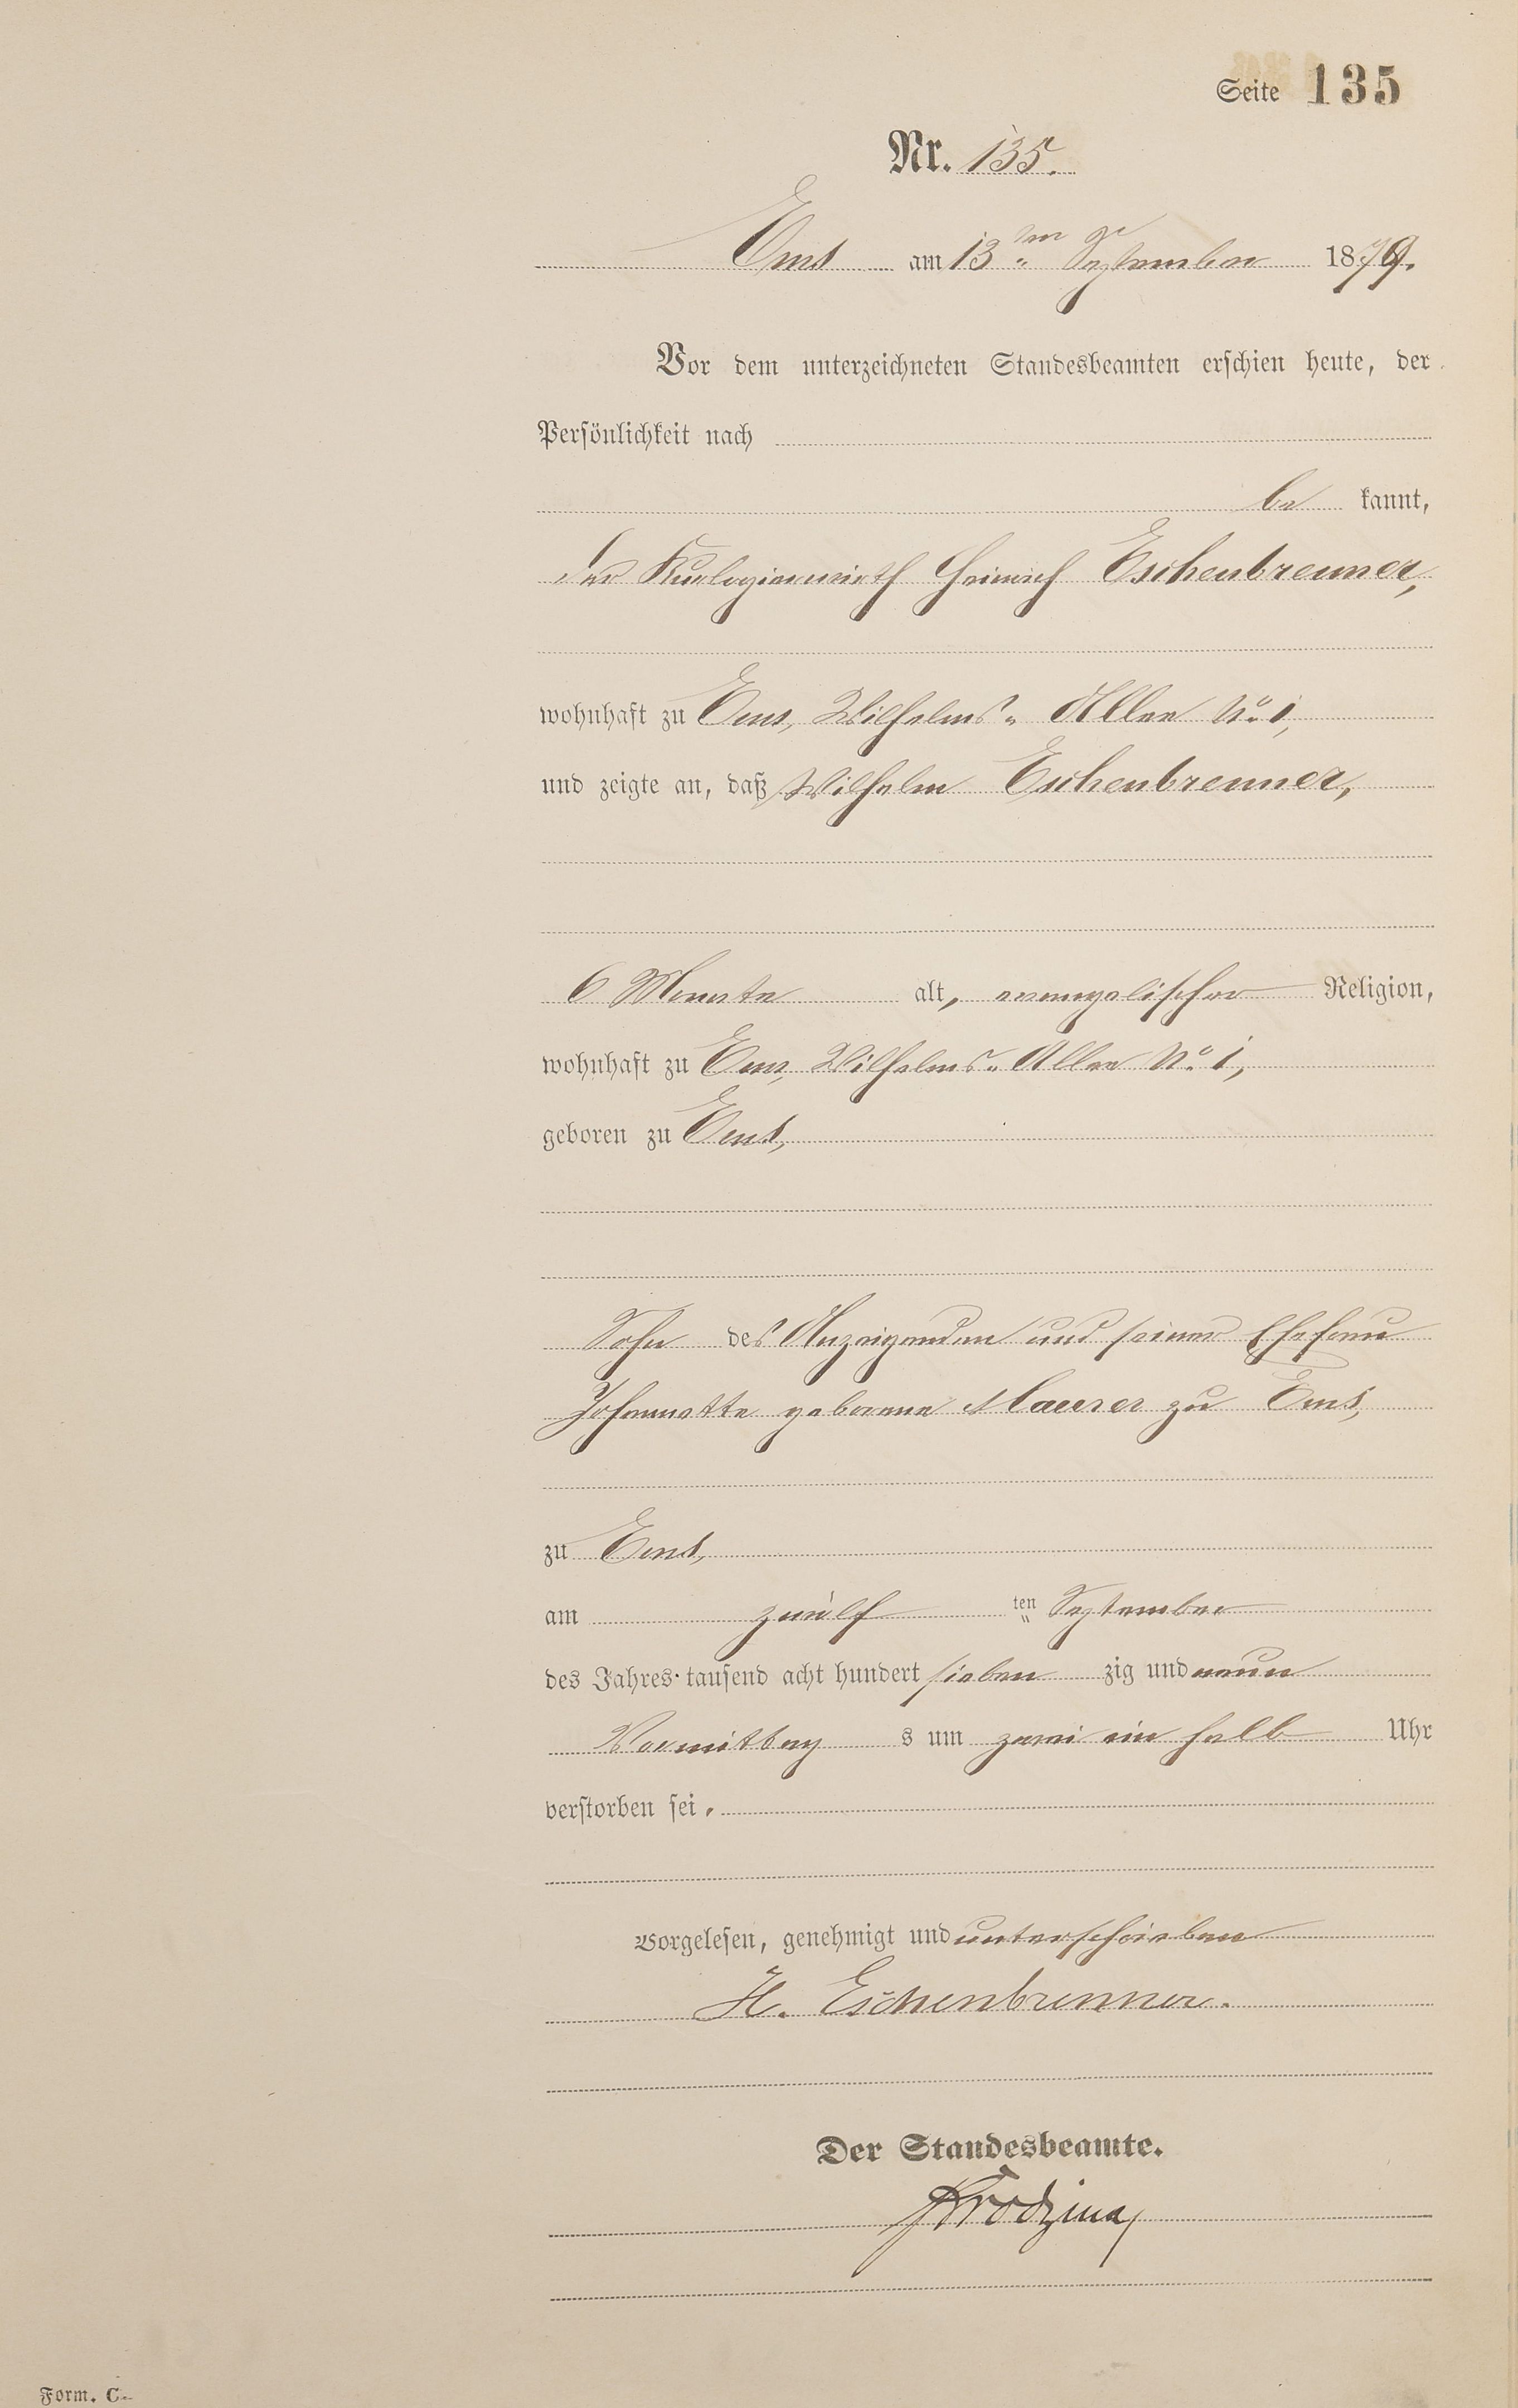 Seite 135
Nr. 135.
Ems am 13ten September 1879.
Vor dem unterzeichneten Standesbeamten erschien heute, der
Persönlichkeit nach
be kannt,
der Kurlogierwirth Heinrich Eschenbrenner,
wohnhaft zu Ems, Wilhelms-Allee No. 1,
und zeigte an, daß Wilhelm Eschenbrenner,
6 Monate alt, evangelischer Religion,
wohnhaft zu Ems, Wilhelms-Allee No. 1,
geboren zu Ems,
Sohn des Anzeigenden und seiner Ehefrau
Johannette geborene Maurer zu Ems,
zu Ems,
am zwölf ten September
des Jahres tausend acht hundert sieben zig und neun
Vormittag s um zwei ein halb Uhr
verstorben sei.
Vorgelesen, genehmigt und unterschrieben
H. Eschenbrenner.
Der Standesbeamte.
Form. C.